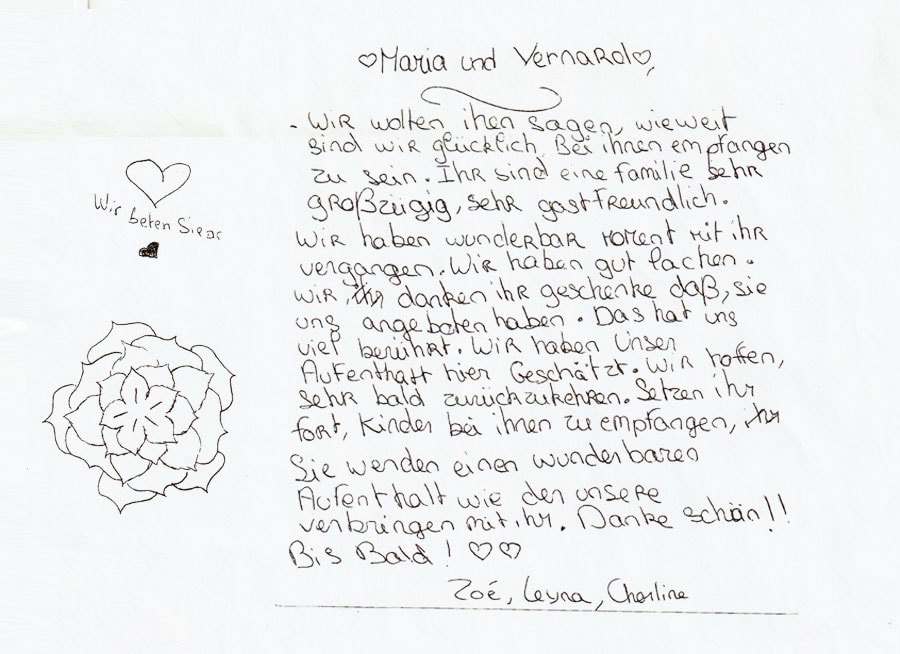 ♡Maria und Vernard♡
- Wir wolten ihen sagen, wieweit
sind wir glücklich, Bei ihnen empfangen
zu sein. Ihr sind eine familie sehr
großzügig, sehr gastfreundlich.
Wir haben wunderbar moment mit ihr
vergangen. Wir haben gut lachen.
wir danken ihr geschenke daß, sie
uns angeboten haben. Das hat uns
viel berührt. Wir haben Unser
Aufenthalt hier Geschätzt. Wir hoffen,
sehr bald zurückzukehren. Setzen ihr
fort, Kinder bei ihnen zu empfangen,
Sie wenden einen wunderbaren
Aufenthalt wie den unsere
verbringen mit ihr. Danke schön!!
Bis Bald! ♡♡
Zoé, Leyna, Charline
Wir beten Sie